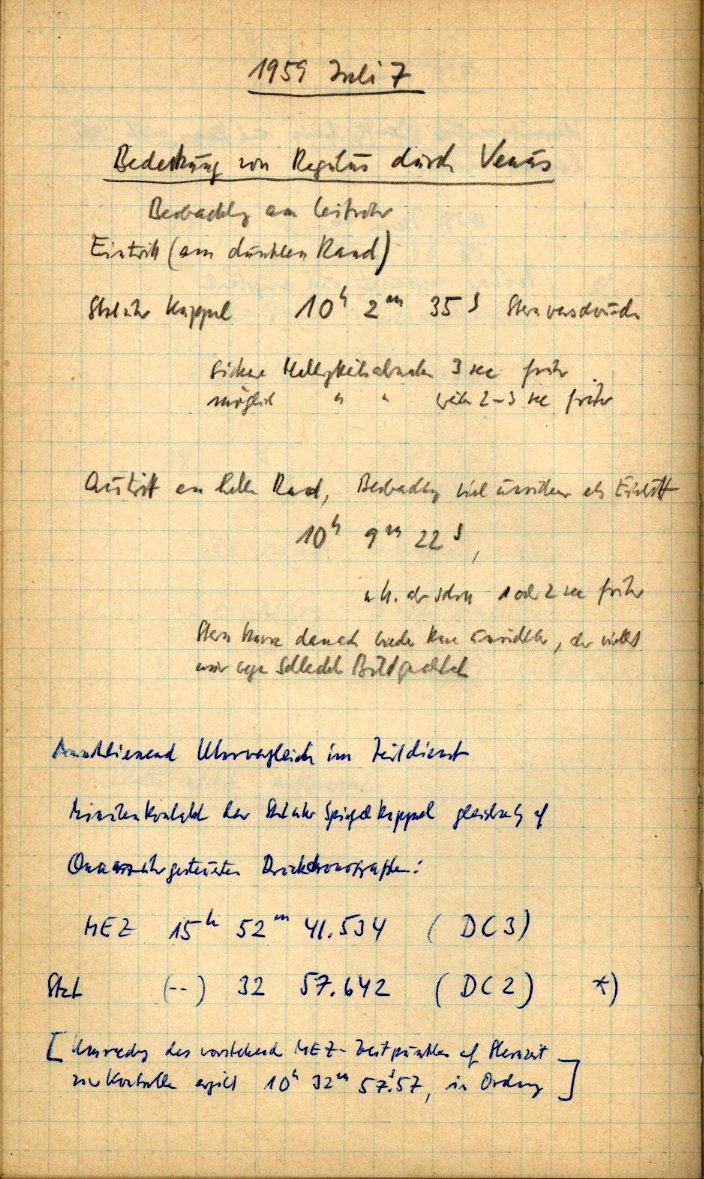 1959 Juli 7
Bedeckung von Regulus durch Venus
Beobachtg am Leitrohr
Eintritt (am dunklen Rand)
Stztuhr Kuppel 10h 2m 35s Stern verschwunden
Sichere Helligkeitsabnahme 3 sec früher
möglich " " weitere 2-3 sec früher
Austritt am hellen Rand, Beobachtg viel unsicherer als Eintritt
10h 9m 22s,
aber schon 1 oder 2 sec früher
Stern kurz danach wieder kurz unsichtbar, aber vielleicht
nur wegen schlechter Bildqualität
Anschliessend Uhrvergleich im Zeitdienst
Minutenkontakt der Stztuhr Spiegelkuppel gleichzeitig auf
Quarzuhrgesteuerten Druckchronographen:
MEZ 15h 52m 41.534 (DC3)
Stzt (--) 32 57.642 (DC2) *)
[Umrechng des vorstehend MEZ-Zeitpunktes auf Sternzeit
zur Kontrolle ergibt 10h 32m 57s.57, in Ordnung]